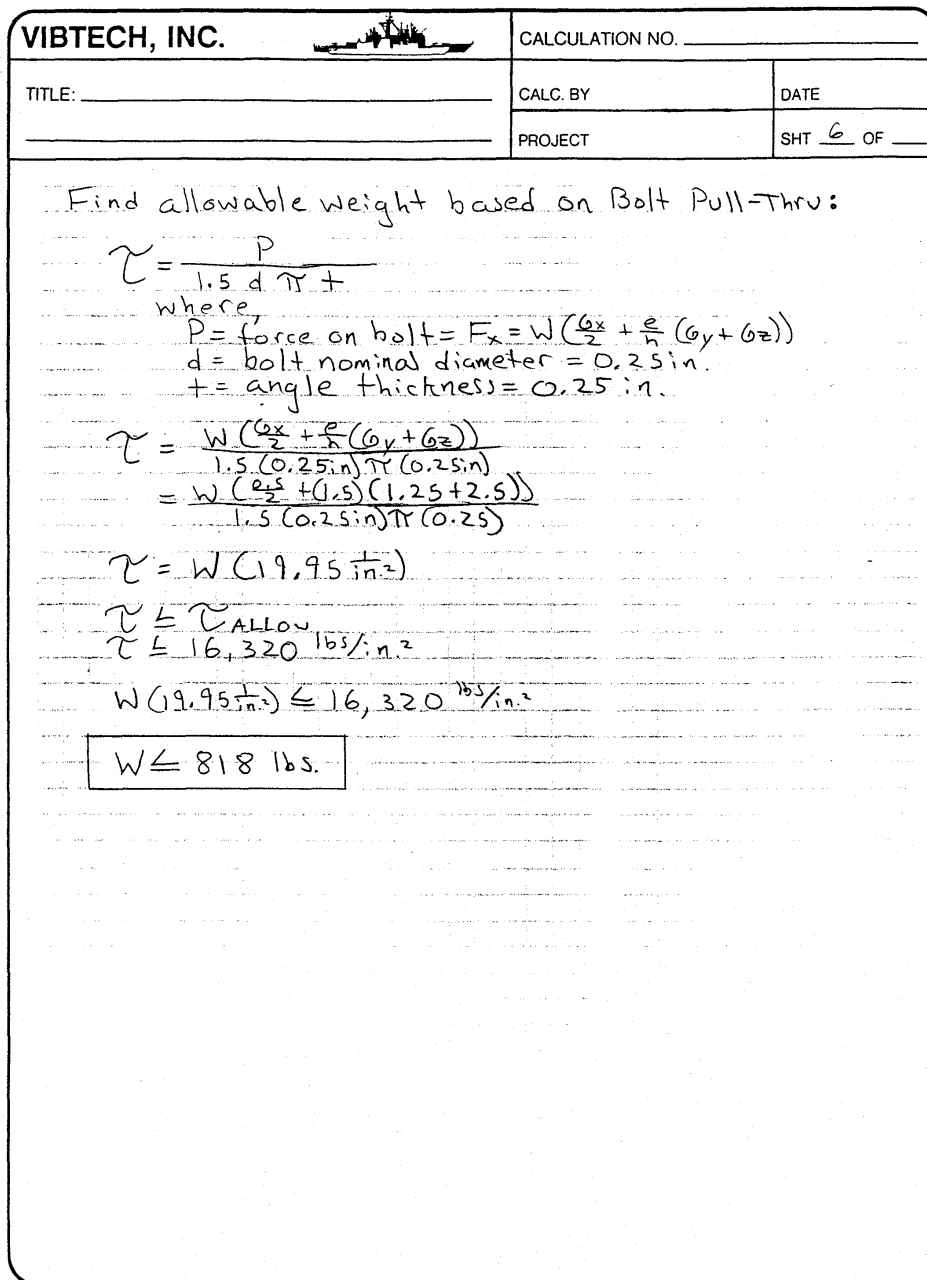 VIBTECH, INC.
CALCULATION NO.
TITLE:
CALC. BY
DATE
PROJECT
SHT 6 OF
Find allowable weight based on Bolt Pull-Thru:
τ = P / (1.5 d π t)
where,
P = force on bolt = Fx = W (Gx/2 + e/h (Gy + Gz))
d = bolt nominal diameter = 0.25in.
t = angle thickness = 0.25 in.
τ = W (Gx/2 + e/h (Gy + Gz)) / (1.5 (0.25in) π (0.25in))
= W (0.5/2 + (1.5)(1.25+2.5)) / (1.5 (0.25in) π (0.25))
τ = W (19.95 1/in.²)
τ ≤ τALLOW
τ ≤ 16,320 lbs/in.²
W (19.95 1/in.²) ≤ 16,320 lbs/in.²
W ≤ 818 lbs.